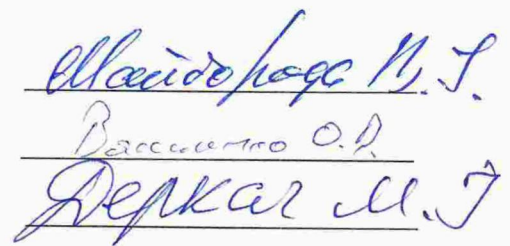 Майборода В.І.
Василенко О.В.
Деркач М.І